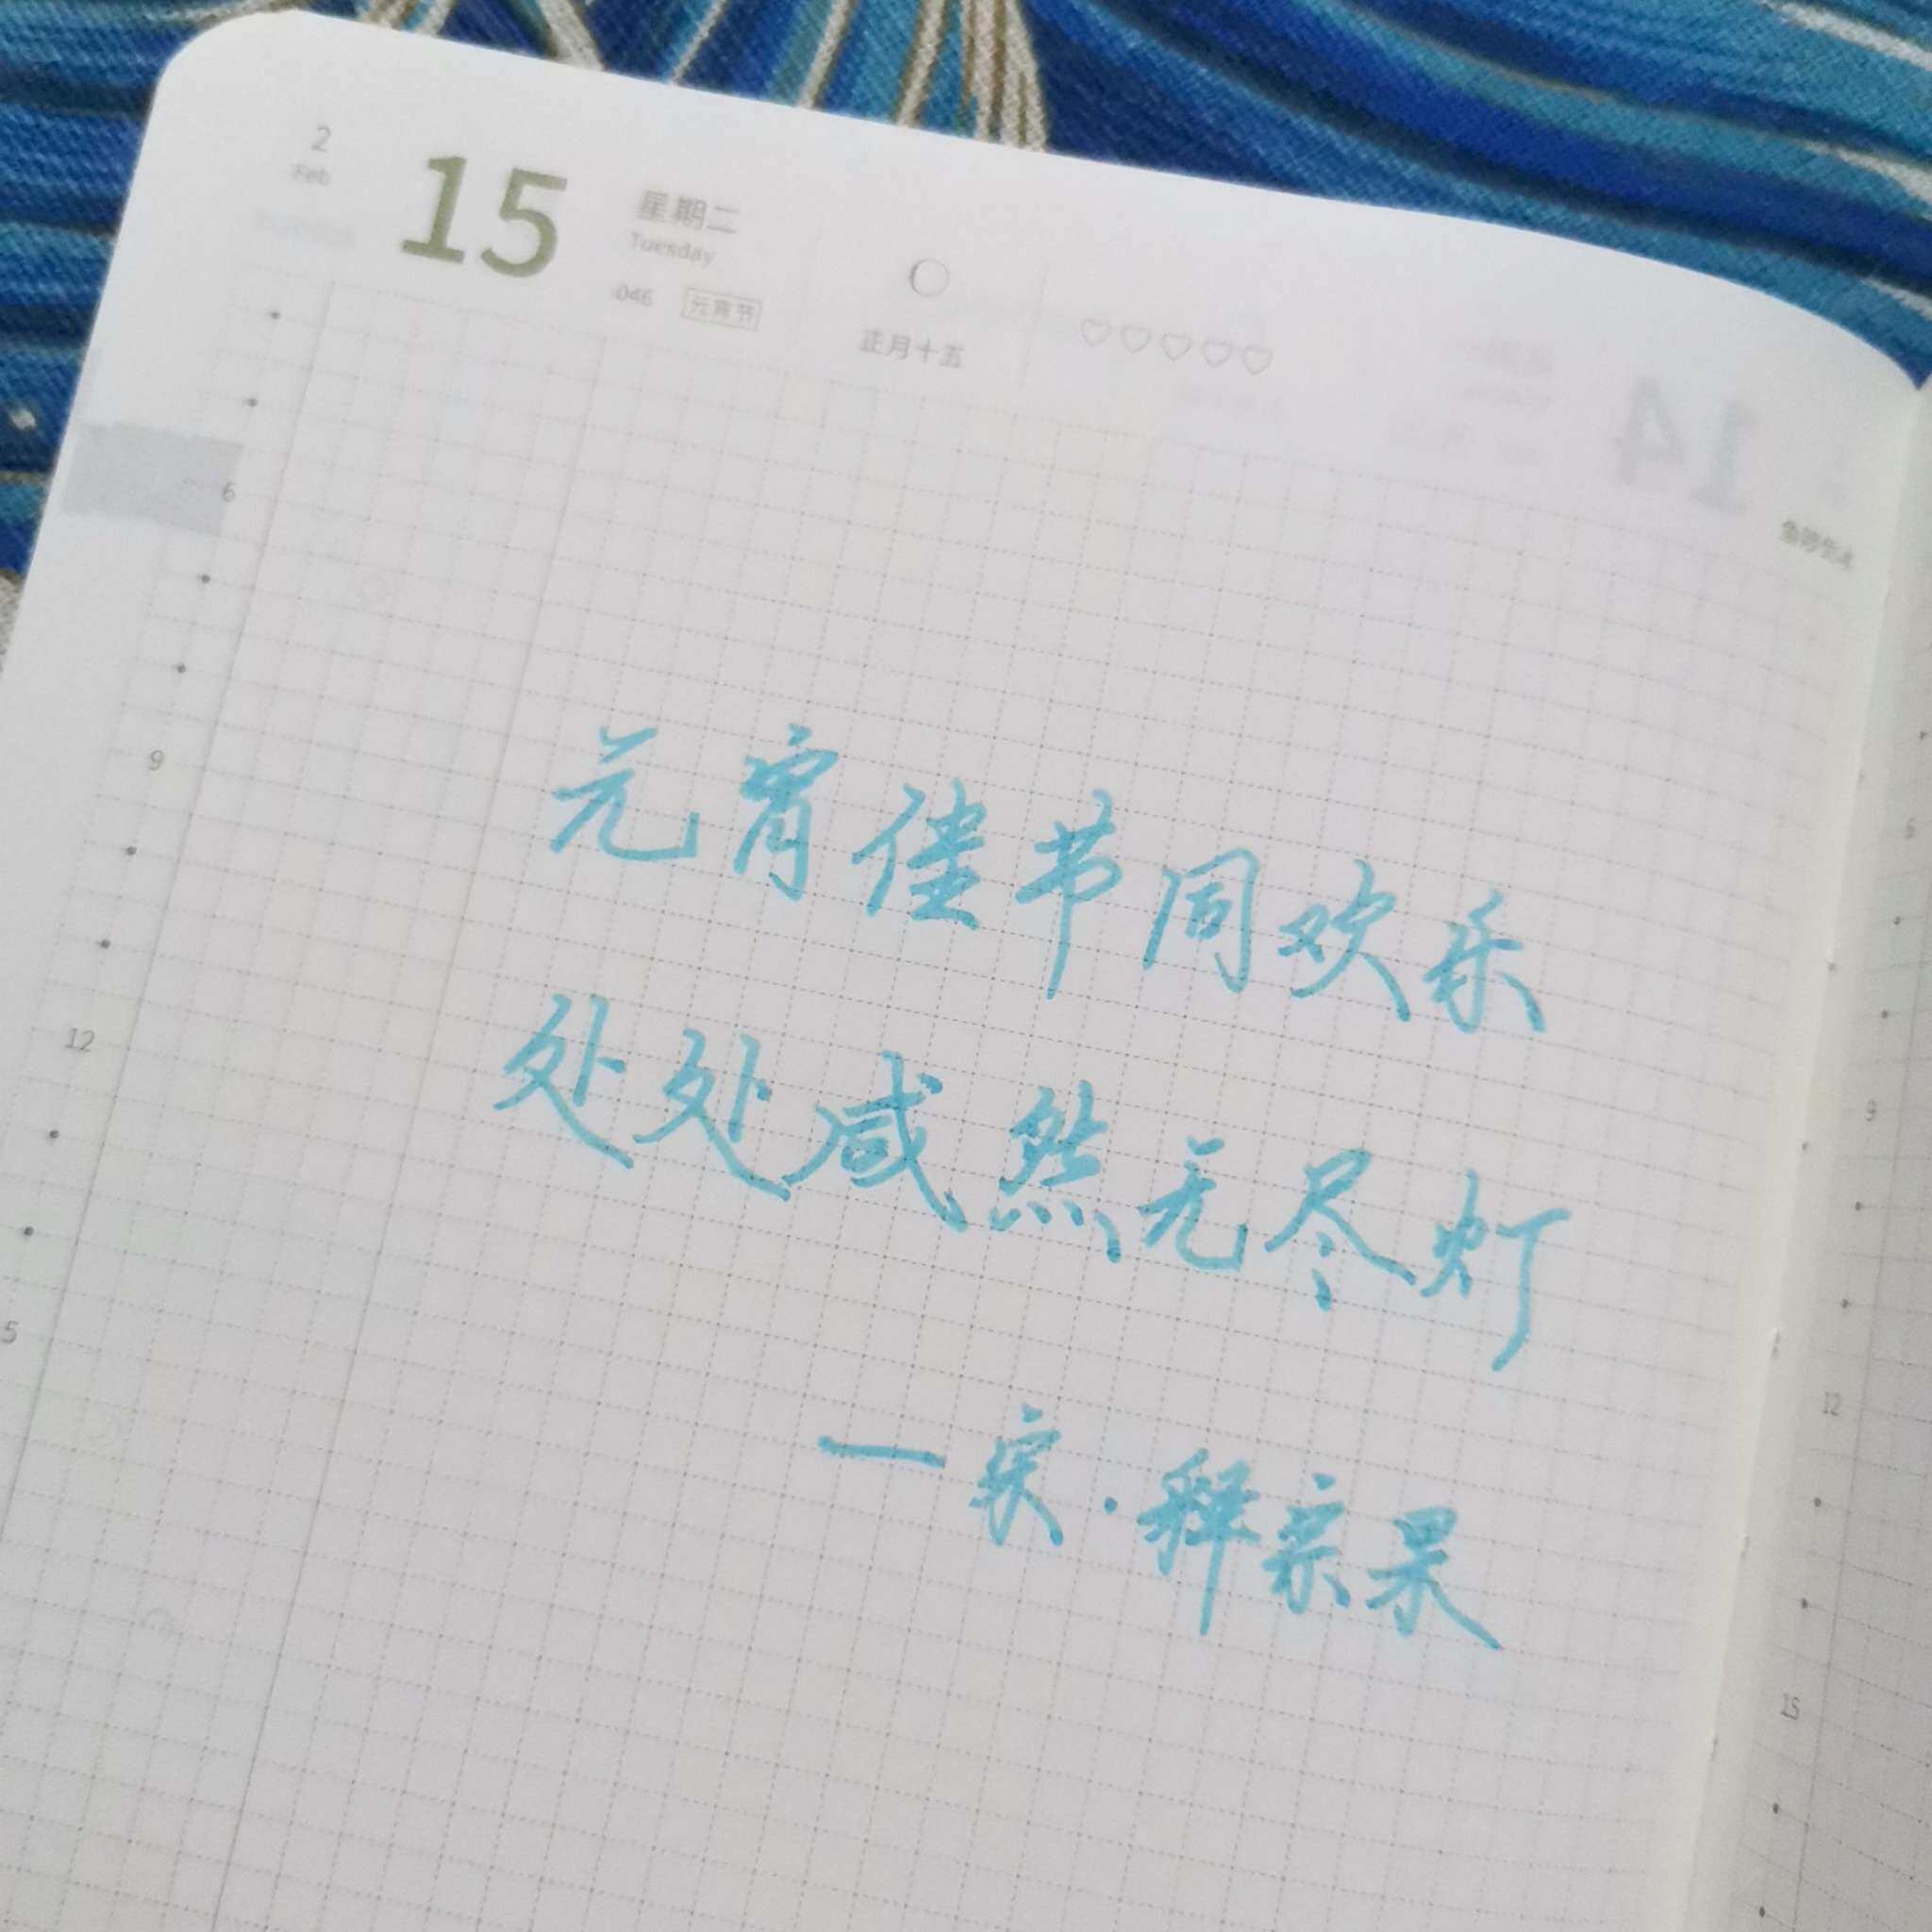 2
Feb
15
星期二
Tuesday
046 元宵节
正月十五
6
9
12
5
元宵佳节同欢乐
处处咸然无尽灯
一宋·释宗杲
9
12
15